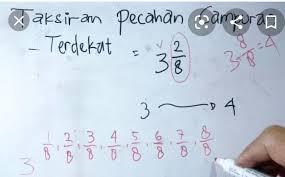 Taksiran Pecahan Campuran
- Terdekat = 3 2/8
3 8/8 = 4
3 → 4
3 1/8, 2/8, 3/8, 4/8, 5/8, 6/8, 7/8, 8/8